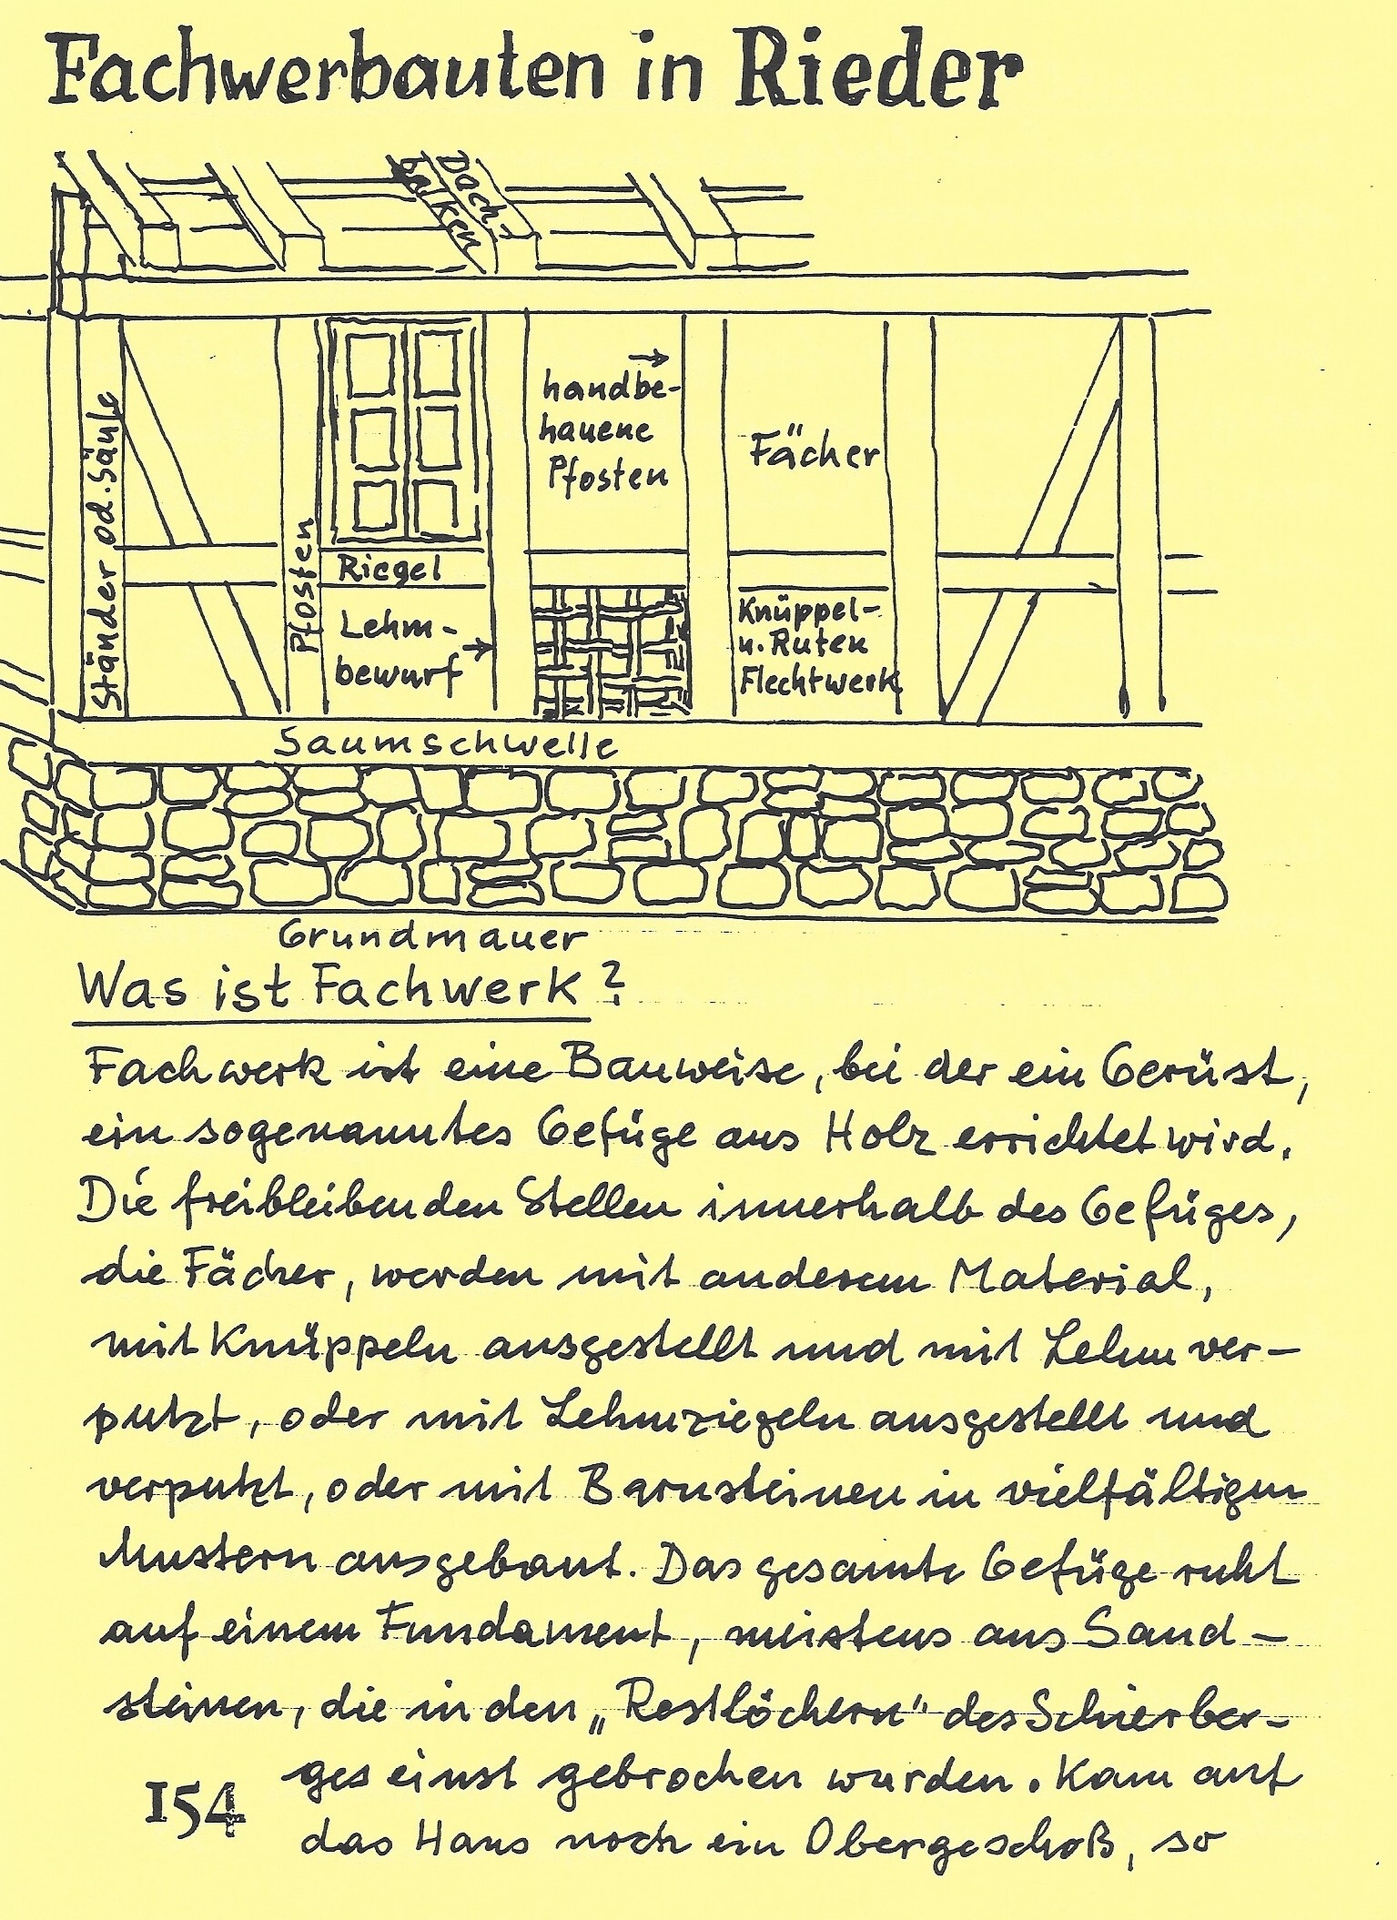 Fachwerbauten in Rieder
Dach-
balken
handbe-
hauene
Pfosten
Fächer
Ständer od. Säule
Pfosten
Riegel
Lehm-
bewurf
Knüppel-
u. Ruten
Flechtwerk
Saumschwelle
Grundmauer
Was ist Fachwerk?
Fachwerk ist eine Bauweise, bei der ein Gerüst,
ein sogenanntes Gefüge aus Holz errichtet wird.
Die freibleibenden Stellen innerhalb des Gefüges,
die Fächer, werden mit anderem Material,
mit Knüppeln ausgestellt und mit Lehm ver-
putzt, oder mit Lehmziegeln ausgestellt und
verputzt, oder mit Barnsteinen in vielfältigen
Mustern ausgebaut. Das gesamte Gefüge ruht
auf einem Fundament, meistens aus Sand-
steinen, die in den „Restlöchern" des Schierber-
ges einst gebrochen wurden. Kam auf
das Haus noch ein Obergeschoß, so
154